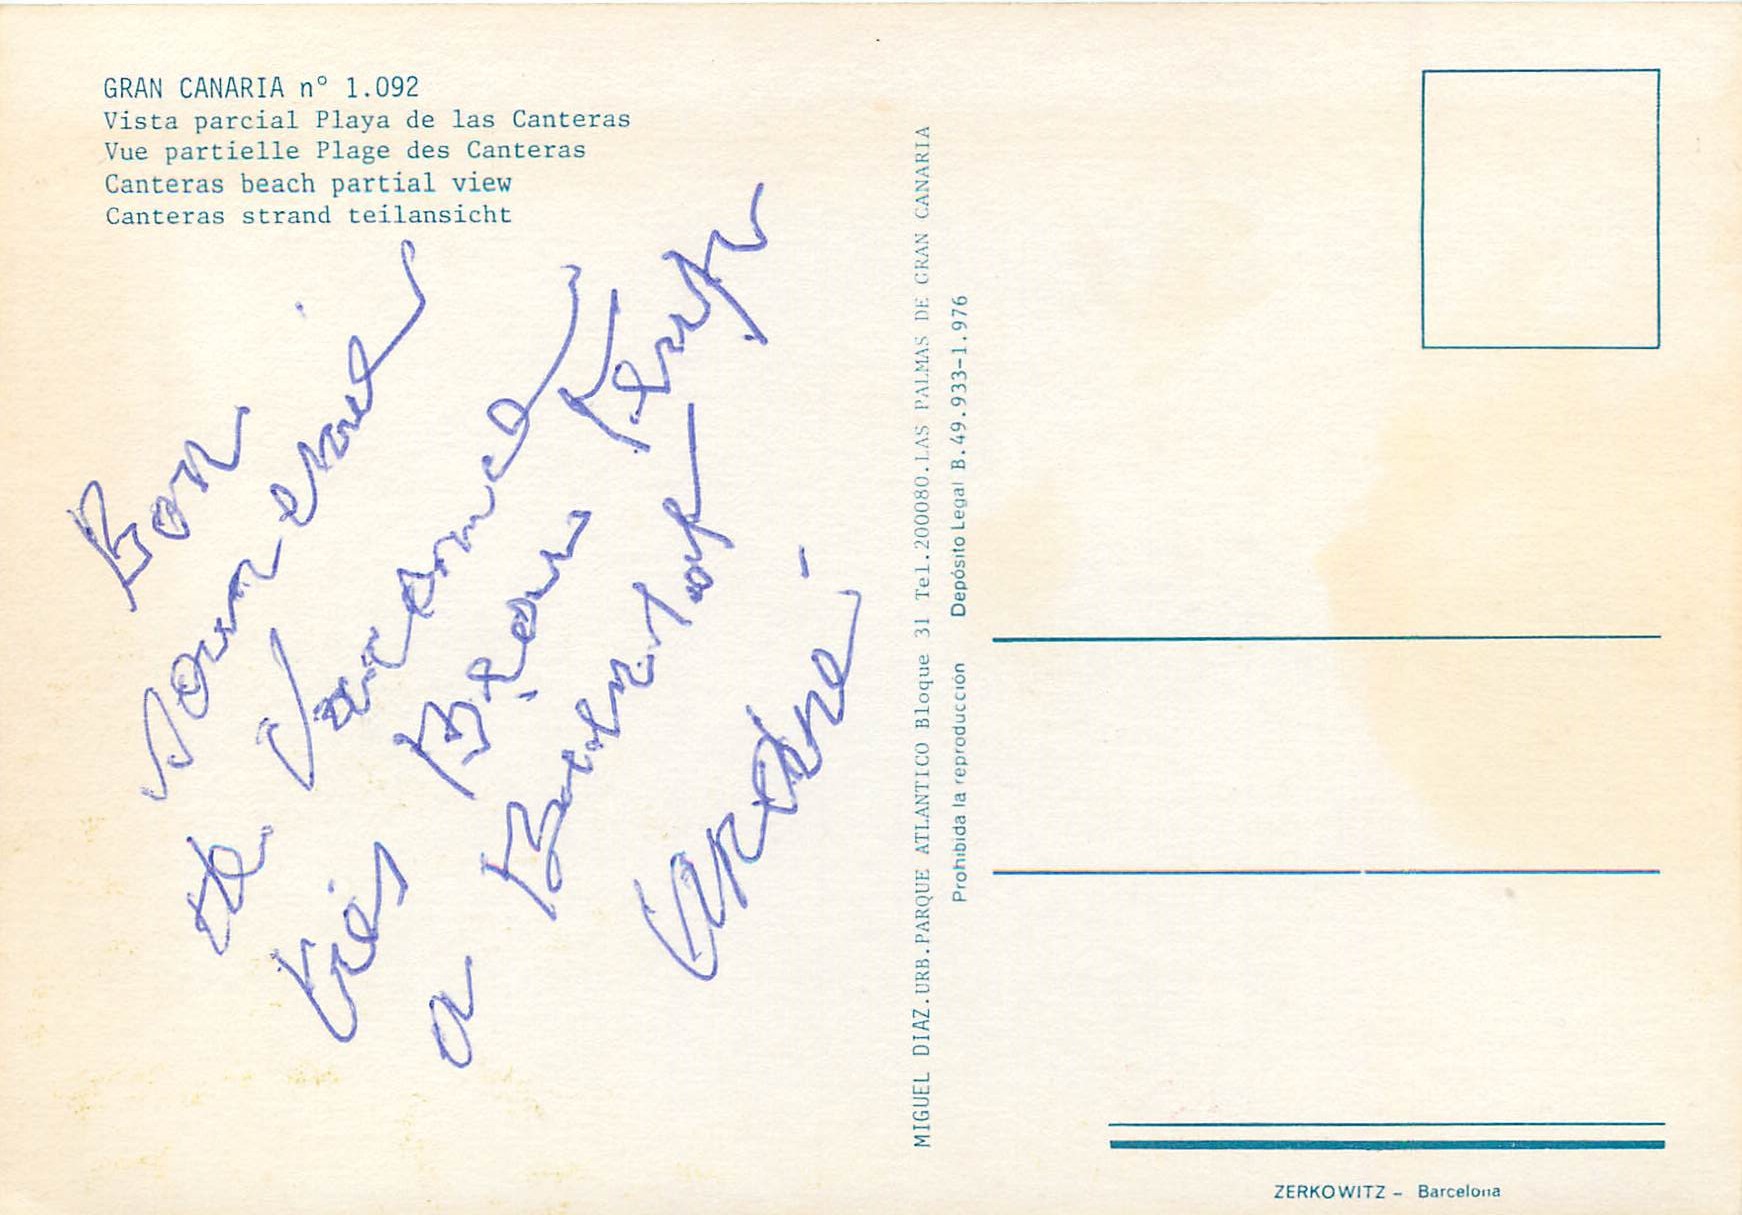 GRAN CANARIA nº 1.092
Vista parcial Playa de las Canteras
Vue partielle Plage des Canteras
Canteras beach partial view
Canteras strand teilansicht
Bon
souvenir
de Vacance
très Beau Temps
a Bientot
André
MIGUEL DIAZ.URB.PARQUE ATLANTICO Bloque 31 Tel.200080.LAS PALMAS DE GRAN CANARIA
Prohibida la reproducción Depósito Legal B.49.933-1.976
ZERKOWITZ - Barcelona